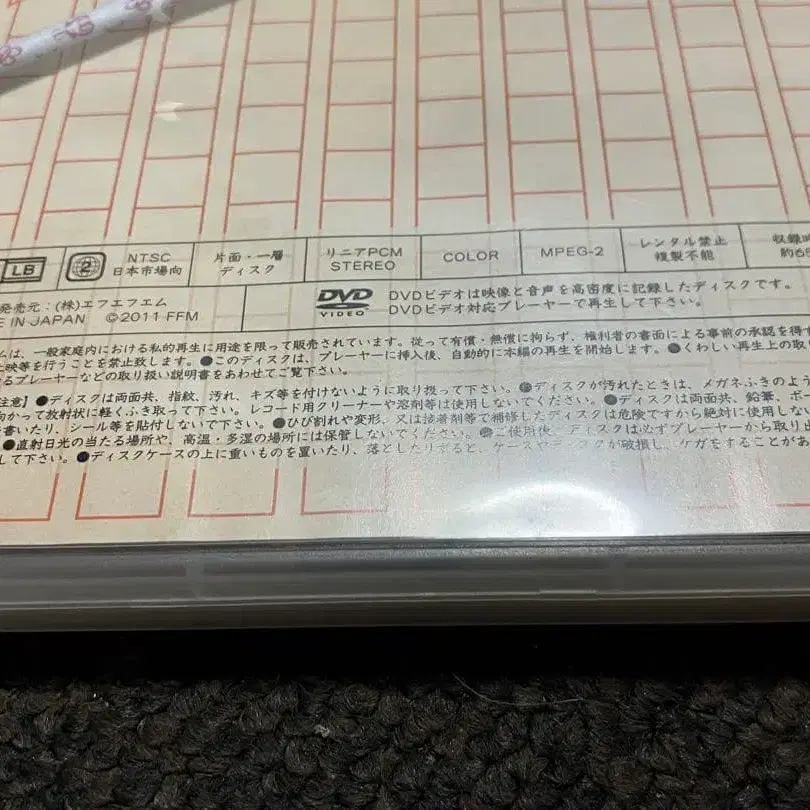 LB
2
NTSC
日本市場向
片面・一層
ディスク
リニアPCM
STEREO
COLOR
MPEG-2
レンタル禁止
複製不能
収録時
約65
発売元：(株)エフエフエム
E IN JAPAN ©2011 FFM
DVD
VIDEO
DVDビデオは映像と音声を高密度に記録したディスクです。
DVDビデオ対応プレーヤーで再生して下さい。
ムは、一般家庭内における私的再生に用途を限って販売されています。従って有償・無償に拘らず、権利者の書面による事前の承認を得ず
上映等を行うことを禁止致します。●このディスクは、プレーヤーに挿入後、自動的に本編の再生を開始します。●くわしい再生上の取り
るプレーヤーなどの取り扱い説明書をあわせてご覧下さい。
注意】●ディスクは両面共、指紋、汚れ、キズ等を付けないように取り扱って下さい。●ディスクが汚れたときは、メガネふきのよう
向かって放射状に軽くふき取って下さい。レコード用クリーナーや溶剤等は使用しないでください。●ディスクは両面共、鉛筆、ボー
書いたり、シール等を貼付しないで下さい。●ひび割れや変形、又は接着剤等で補修したディスクは危険ですから絶対に使用しない
●直射日光の当たる場所や、高温・多湿の場所には保管しないでください。●ご使用後、ディスクは必ずプレーヤーから取り出
して下さい。●ディスクケースの上に重いものを置いたり、落としたりすると、ケースやディスクが破損し、ケガをすることがあ